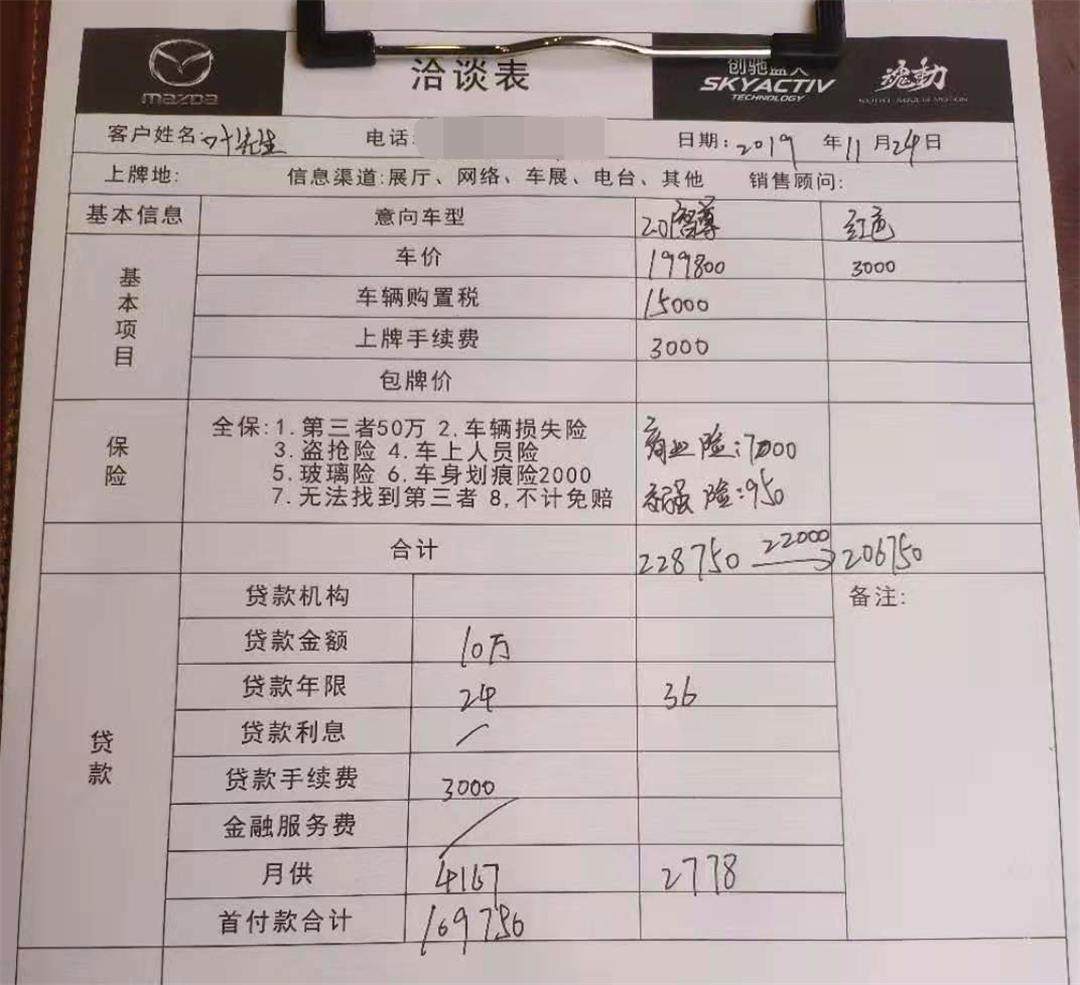 mazda
洽谈表
创驰蓝天
SKYACTIV
TECHNOLOGY
魂動
客户姓名:叶先生 电话: 日期:2019 年11月24日
上牌地: 信息渠道:展厅、网络、车展、电台、其他 销售顾问:
基本信息 意向车型 2.0L智尊 红色
基本项目
车价 199800 3000
车辆购置税 15000
上牌手续费 3000
包牌价
保险
全保:1.第三者50万 2.车辆损失险
3.盗抢险 4.车上人员险
5.玻璃险 6.车身划痕险2000
7.无法找到第三者 8,不计免赔
商业险:7000
交强险:950
合计 228750 22000 206750
贷款
贷款机构 备注:
贷款金额 10万
贷款年限 24 36
贷款利息 /
贷款手续费 3000
金融服务费 /
月供 4167 2778
首付款合计